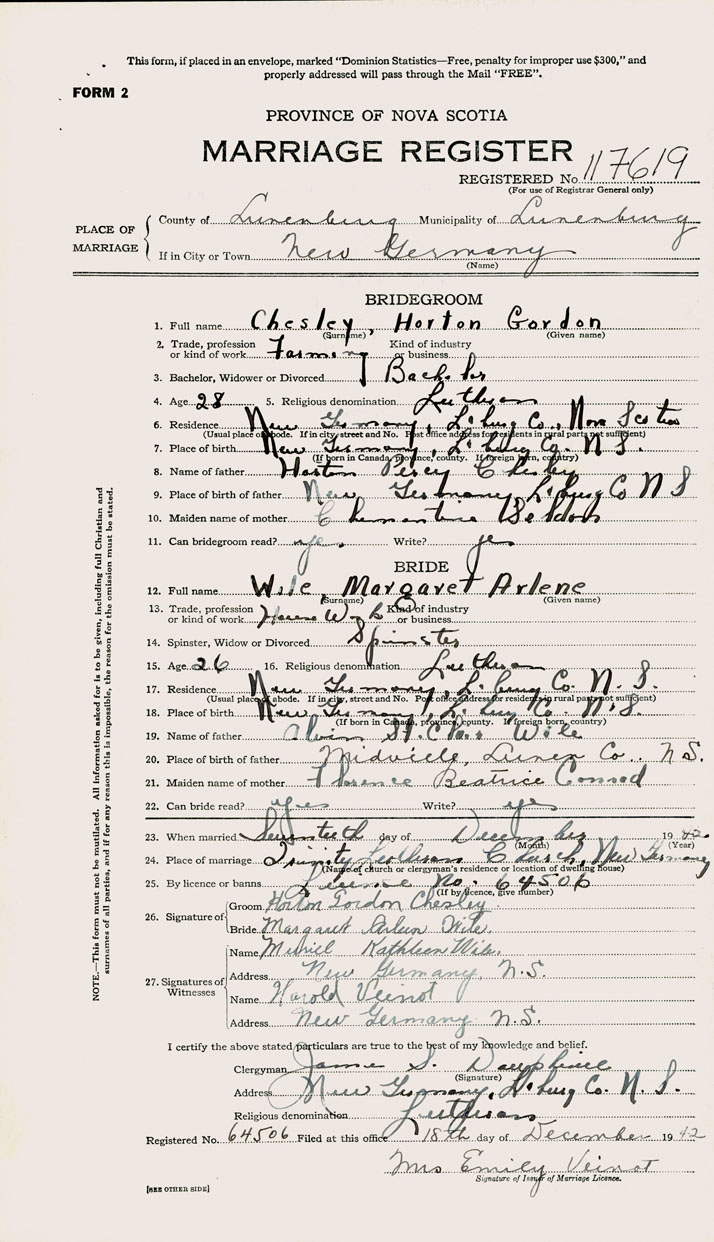 This form, if placed in an envelope, marked "Dominion Statistics—Free, penalty for improper use $300," and
properly addressed will pass through the Mail "FREE".
FORM 2
PROVINCE OF NOVA SCOTIA
MARRIAGE REGISTER
REGISTERED No. 117619
(For use of Registrar General only)
PLACE OF MARRIAGE
County of Lunenburg Municipality of Lunenburg
If in City or Town New Germany
(Name)
BRIDEGROOM
1. Full name Chesley, Horton Gordon
(Surname) (Given name)
2. Trade, profession or kind of work Farming Kind of industry or business
3. Bachelor, Widower or Divorced Bachelor
4. Age 28 5. Religious denomination Lutheran
6. Residence New Germany, L'burg Co., Nova Scotia
(Usual place of abode. If in city, street and No. Post office address for residents in rural parts not sufficient)
7. Place of birth New Germany, L'burg Co. N S.
(If born in Canada, province, county. If foreign born, country)
8. Name of father Horton Percy Chesley
9. Place of birth of father New Germany L'burg Co N S
10. Maiden name of mother
11. Can bridegroom read? yes Write? yes
BRIDE
12. Full name Wile, Margaret Arlene
(Surname) (Given name)
13. Trade, profession or kind of work House Work Kind of industry or business
14. Spinster, Widow or Divorced Spinster
15. Age 26 16. Religious denomination Lutheran
17. Residence New Germany, L'burg Co. N. S.
(Usual place of abode. If in city, street and No. Post office address for residents in rural parts not sufficient)
18. Place of birth New Germany, L'burg Co. N. S.
(If born in Canada, province, county. If foreign born, country)
19. Name of father Alvin St. Clair Wile
20. Place of birth of father Midville, Lunen Co., N S.
21. Maiden name of mother Florence Beatrice Conrad
22. Can bride read? yes Write? yes
23. When married day of December 1942
(Month) (Year)
24. Place of marriage Trinity Lutheran Church, New Germany
(Name of church or clergyman's residence or location of dwelling house)
25. By licence or banns License No. 64506
(If by licence, give number)
26. Signature of
Groom Horton Gordon Chesley
Bride Margaret Arleen Wile.
27. Signatures of Witnesses
Name Muriel Kathleen Wile.
Address New Germany, N.S.
Name Harold Veinot
Address New Germany N.S.
I certify the above stated particulars are true to the best of my knowledge and belief.
Clergyman James S. Dauphinee
(Signature)
Address New Germany, L'burg Co. N. S.
Religious denomination Lutheran
Registered No. 64506 Filed at this office 18th day of December 1942
Mrs Emily Veinot
Signature of Issuer of Marriage Licence.
[SEE OTHER SIDE]
NOTE.—This form must not be mutilated. All information asked for is to be given, including full Christian and
surnames of all parties, and if for any reason this is impossible, the reason for the omission must be stated.